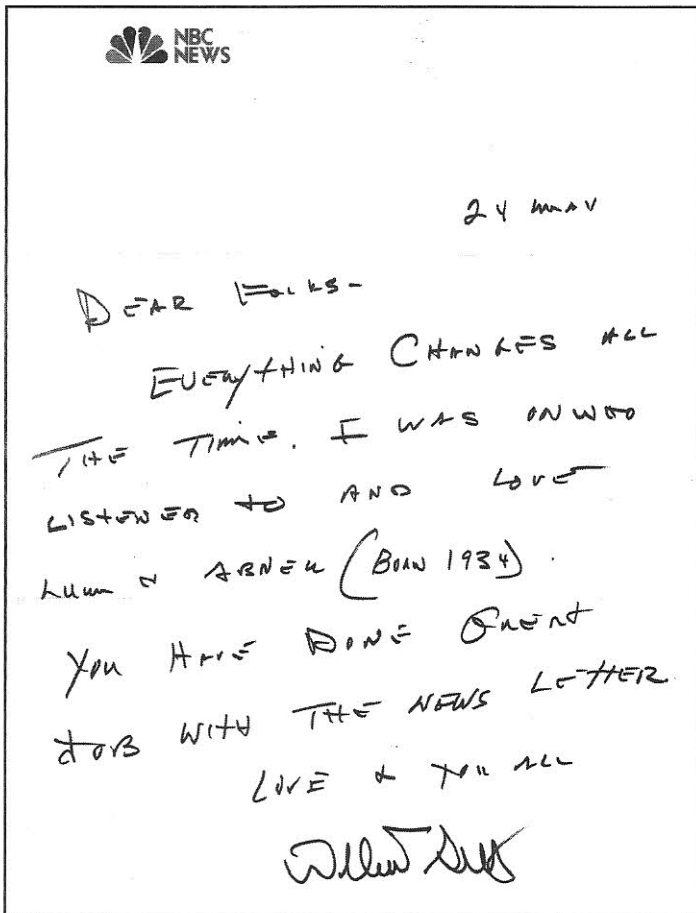 NBC
NEWS
24 MAY
DEAR FOLKS-
EVERYTHING CHANGES ALL
THE TIME. I WAS ON WHO
LISTENED TO AND LOVE
LUM N ABNER (BORN 1934).
YOU HAVE DONE GREAT
JOB WITH THE NEWS LETTER
LOVE & YOU ALL
Willard Scott